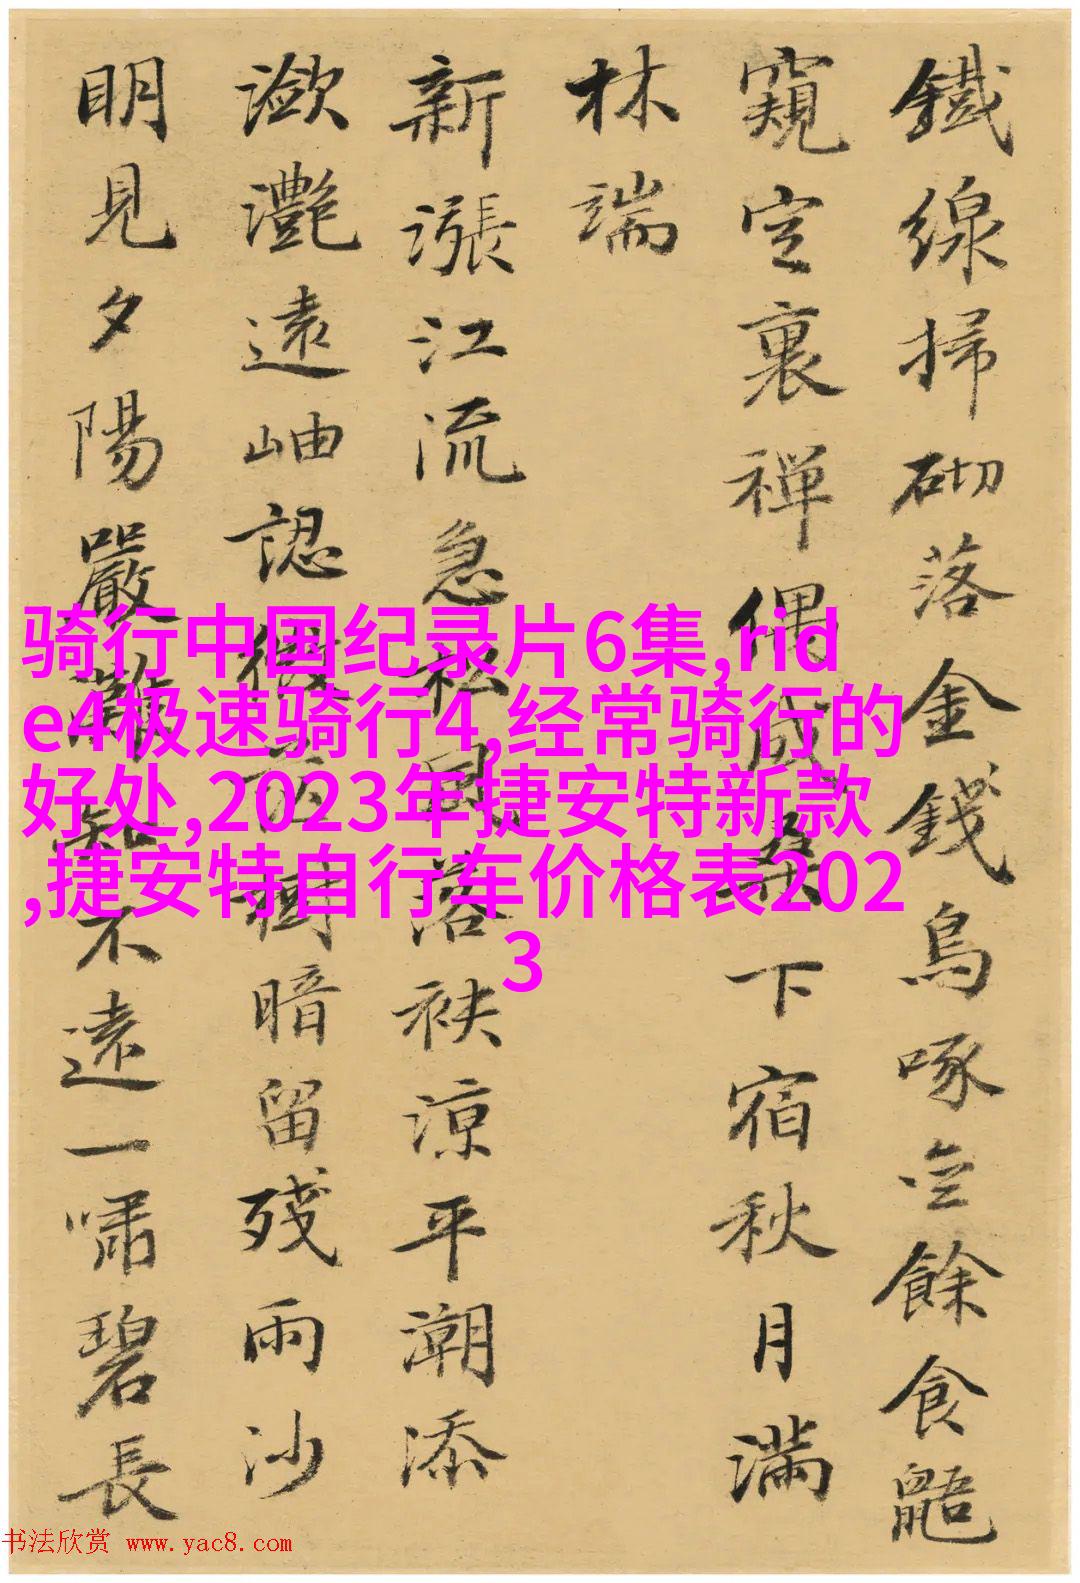 鐵線掃砌落金錢烏啄餘食鼯
窺定裏禪偶成桑下宿秋月滿
林端
新漲江流急落袂涼平潮添
瀲灧遠岫認微茫樹暗留殘雨沙
明見夕陽嚴灘知不遠一嘯碧長
骑行中国纪录片6集,rid
e4极速骑行4,经常骑行的
好处,2023年捷安特新款
,捷安特自行车价格表202
3
书法欣赏 www.yac8.com